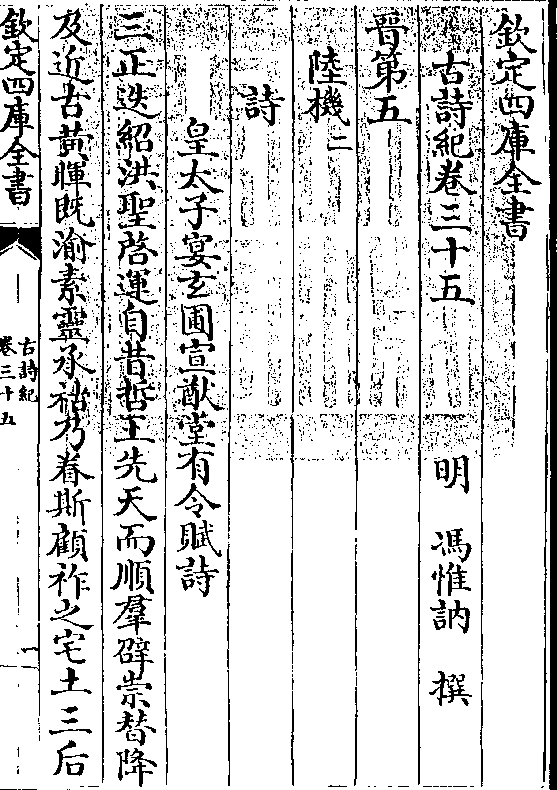 欽定四庫全書
古詩紀卷三十五
明 馮惟訥 撰
晉第五
陸機二
詩
皇太子宴玄圃宣猷堂有令賦詩
三正迭紹洪聖啓運自昔哲王先天而順羣辟崇替降
及近古黃暉既渝素靈承祜乃眷斯顧祚之宅土三后
欽定四庫全書
古詩紀
卷三十五
一